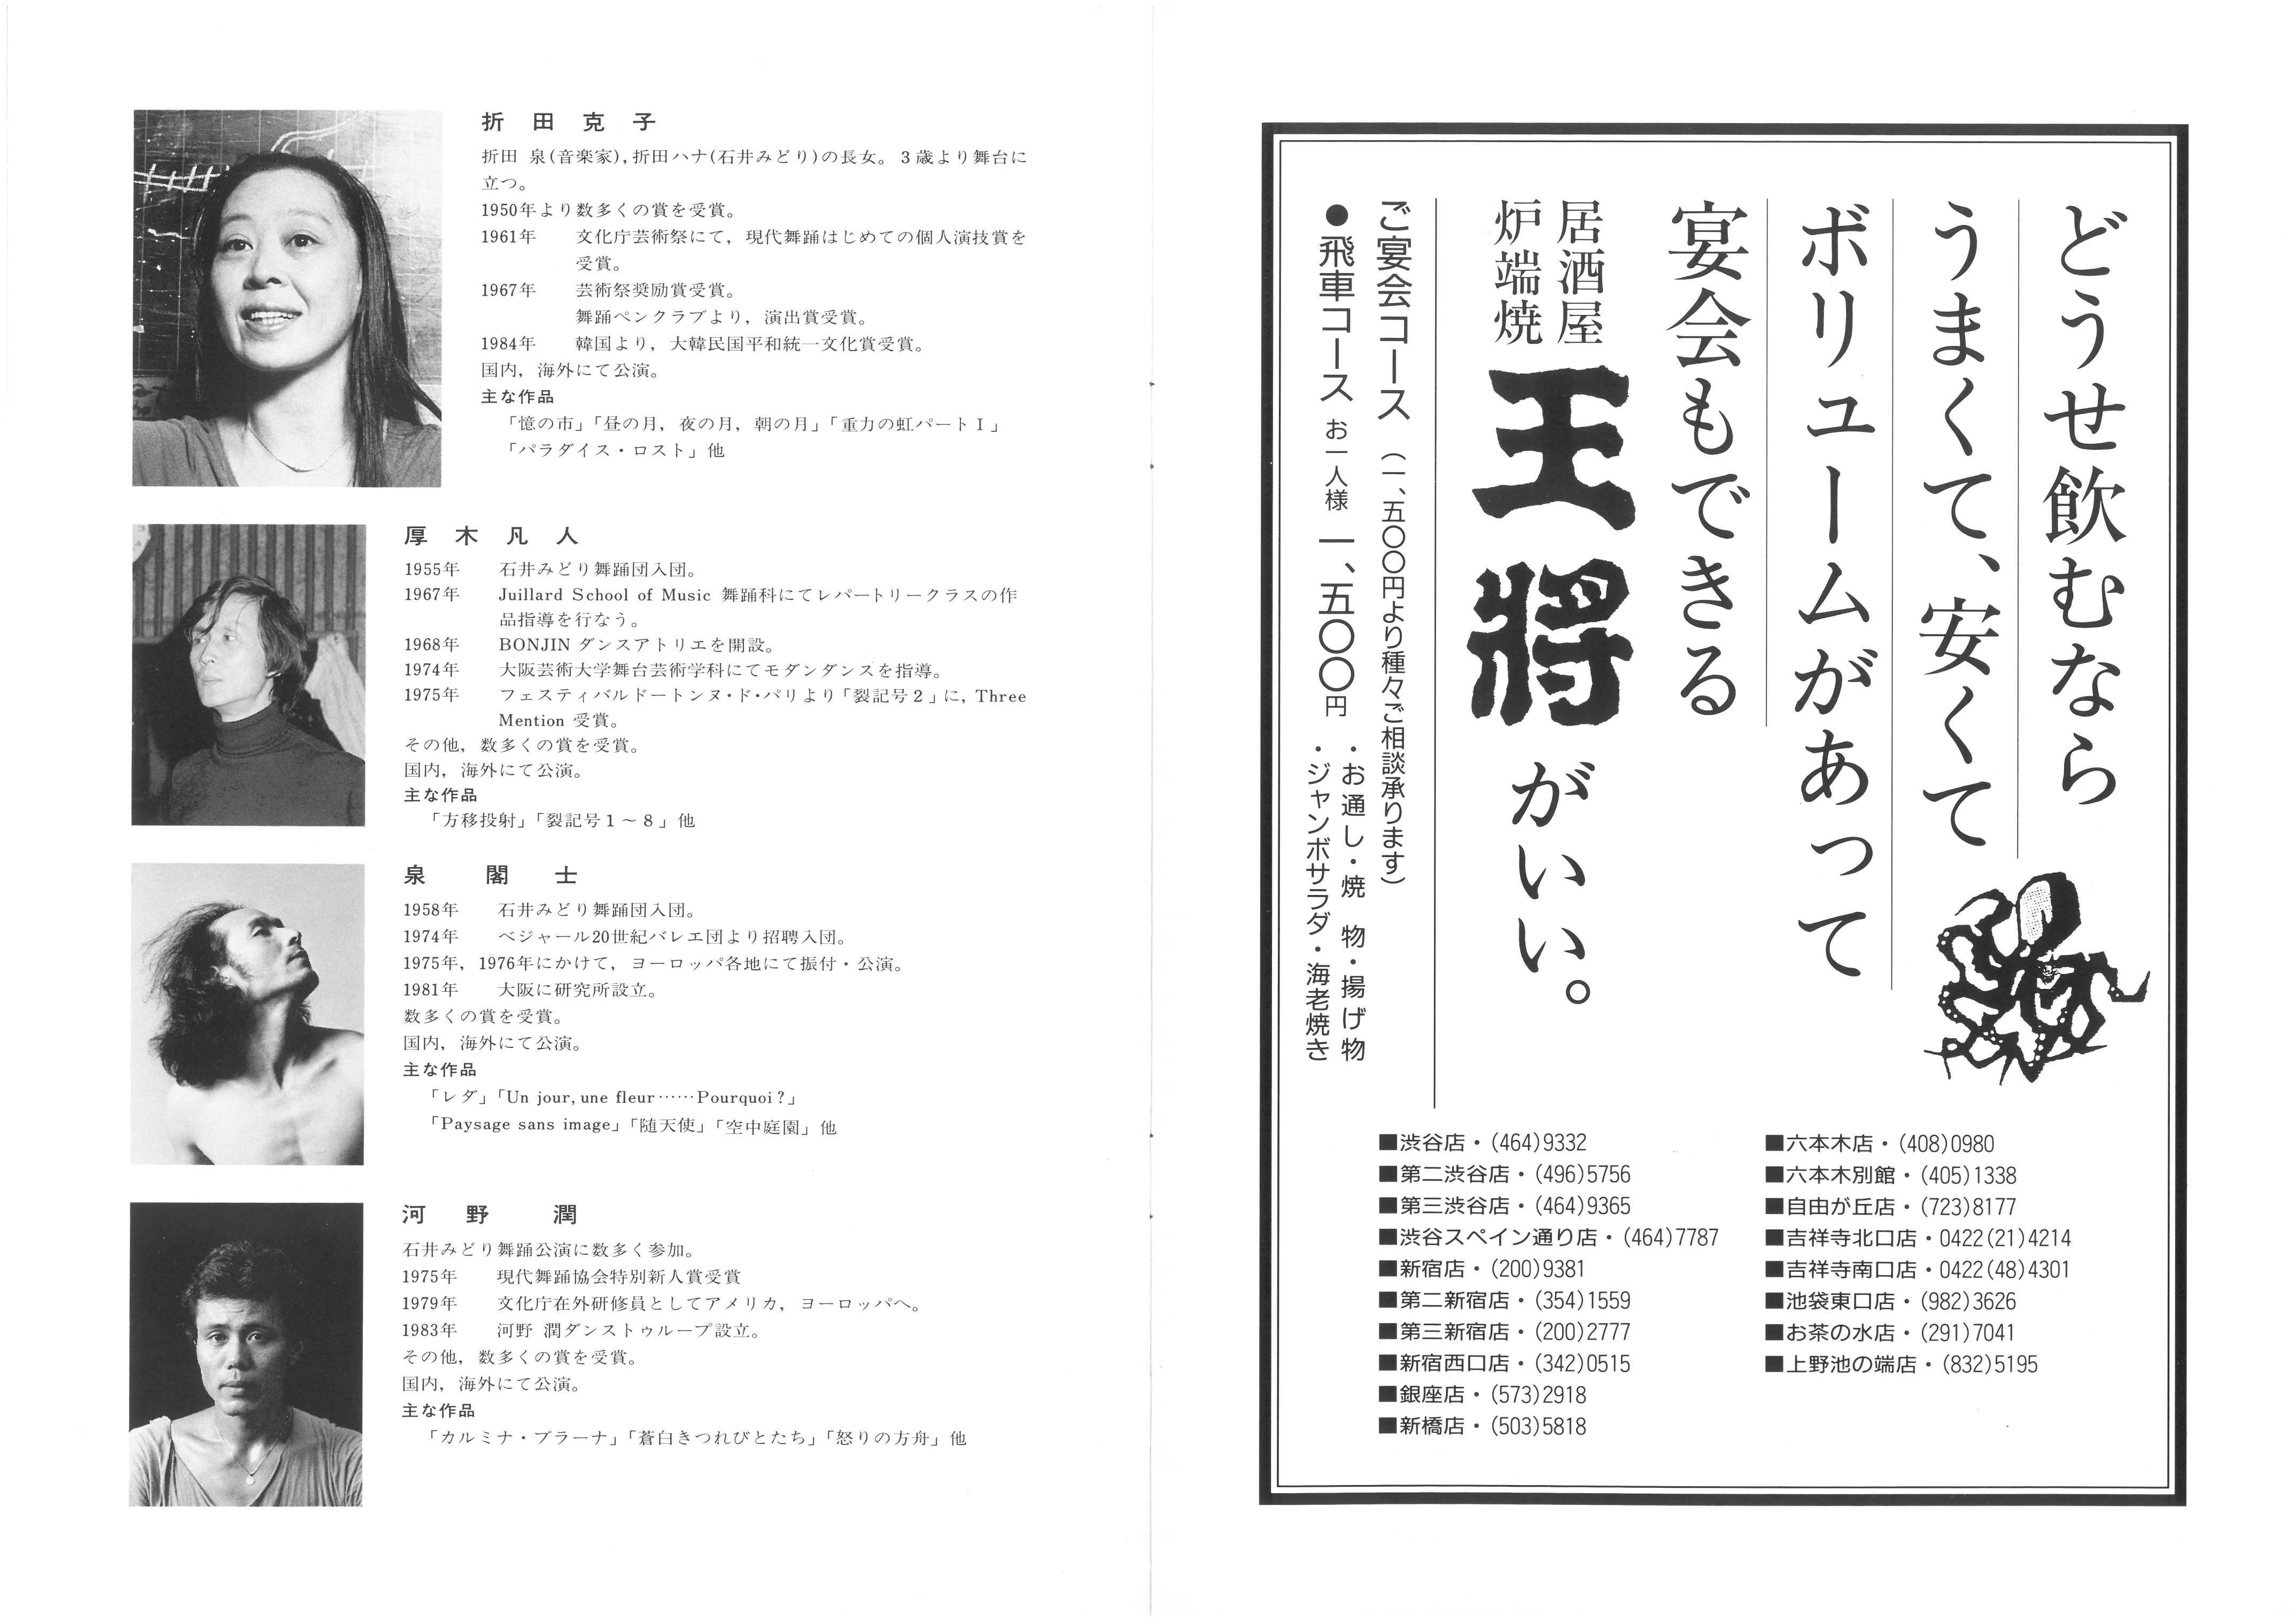 折田克子
折田 泉(音楽家),折田ハナ(石井みどり)の長女。3歳より舞台に
立つ。
1950年より数多くの賞を受賞。
1961年 文化庁芸術祭にて,現代舞踊はじめての個人演技賞を
受賞。
1967年 芸術祭奨励賞受賞。
舞踊ペンクラブより,演出賞受賞。
1984年 韓国より,大韓民国平和統一文化賞受賞。
国内,海外にて公演。
主な作品
「憶の市」「昼の月,夜の月,朝の月」「重力の虹パートⅠ」
「パラダイス・ロスト」他
厚木凡人
1955年 石井みどり舞踊団入団。
1967年 Juillard School of Music 舞踊科にてレパートリークラスの作
品指導を行なう。
1968年 BONJIN ダンスアトリエを開設。
1974年 大阪芸術大学舞台芸術学科にてモダンダンスを指導。
1975年 フェスティバルドートンヌ・ド・パリより「裂記号2」に, Three
Mention 受賞。
その他,数多くの賞を受賞。
国内,海外にて公演。
主な作品
「方移投射」「裂記号1~8」他
泉 閣士
1958年 石井みどり舞踊団入団。
1974年 ベジャール20世紀バレエ団より招聘入団。
1975年,1976年にかけて,ヨーロッパ各地にて振付・公演。
1981年 大阪に研究所設立。
数多くの賞を受賞。
国内,海外にて公演。
主な作品
「レダ」「Un jour, une fleur……Pourquoi?」
「Paysage sans image」「随天使」「空中庭園」他
河野 潤
石井みどり舞踊公演に数多く参加。
1975年 現代舞踊協会特別新人賞受賞
1979年 文化庁在外研修員としてアメリカ,ヨーロッパへ。
1983年 河野 潤ダンストゥループ設立。
その他,数多くの賞を受賞。
国内,海外にて公演。
主な作品
「カルミナ・ブラーナ」「蒼白きつれびとたち」「怒りの方舟」他
どうせ飲むなら
うまくて、安くて
ボリュームがあって
宴会もできる
居酒屋
炉端焼
王將がいい。
ご宴会コース(一、五〇〇円より種々ご相談承ります)
●飛車コース お一人様 一、五〇〇円
・お通し・焼 物・揚げ物
・ジャンボサラダ・海老焼き
■渋谷店・(464)9332
■第二渋谷店・(496)5756
■第三渋谷店・(464)9365
■渋谷スペイン通り店・(464)7787
■新宿店・(200)9381
■第二新宿店・(354)1559
■第三新宿店・(200)2777
■新宿西口店・(342)0515
■銀座店・(573)2918
■新橋店・(503)5818
■六本木店・(408)0980
■六本木別館・(405)1338
■自由が丘店・(723)8177
■吉祥寺北口店・0422(21)4214
■吉祥寺南口店・0422(48)4301
■池袋東口店・(982)3626
■お茶の水店・(291)7041
■上野池の端店・(832)5195